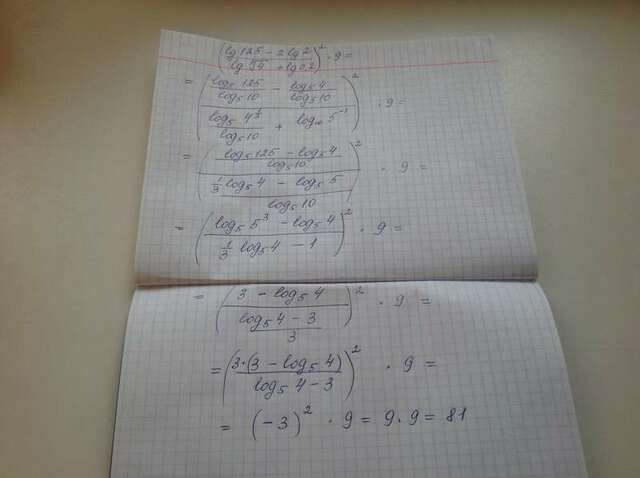 ((lg 125 - 2 lg 2)/(lg ∛4 + lg 0,2))² · 9 =
= ((log₅ 125/log₅ 10 - log₅ 4/log₅ 10)/(log₅ 4^⅓/log₅ 10 + log₁₀ 5⁻¹))² · 9 =
= (((log₅ 125 - log₅ 4)/log₅ 10)/((⅓ log₅ 4 - log₅ 5)/log₅ 10))² · 9 =
= ((log₅ 5³ - log₅ 4)/(⅓ log₅ 4 - 1))² · 9 =
= ((3 - log₅ 4)/((log₅ 4 - 3)/3))² · 9 =
= (3·(3 - log₅ 4)/(log₅ 4 - 3))² · 9 =
= (-3)² · 9 = 9 · 9 = 81